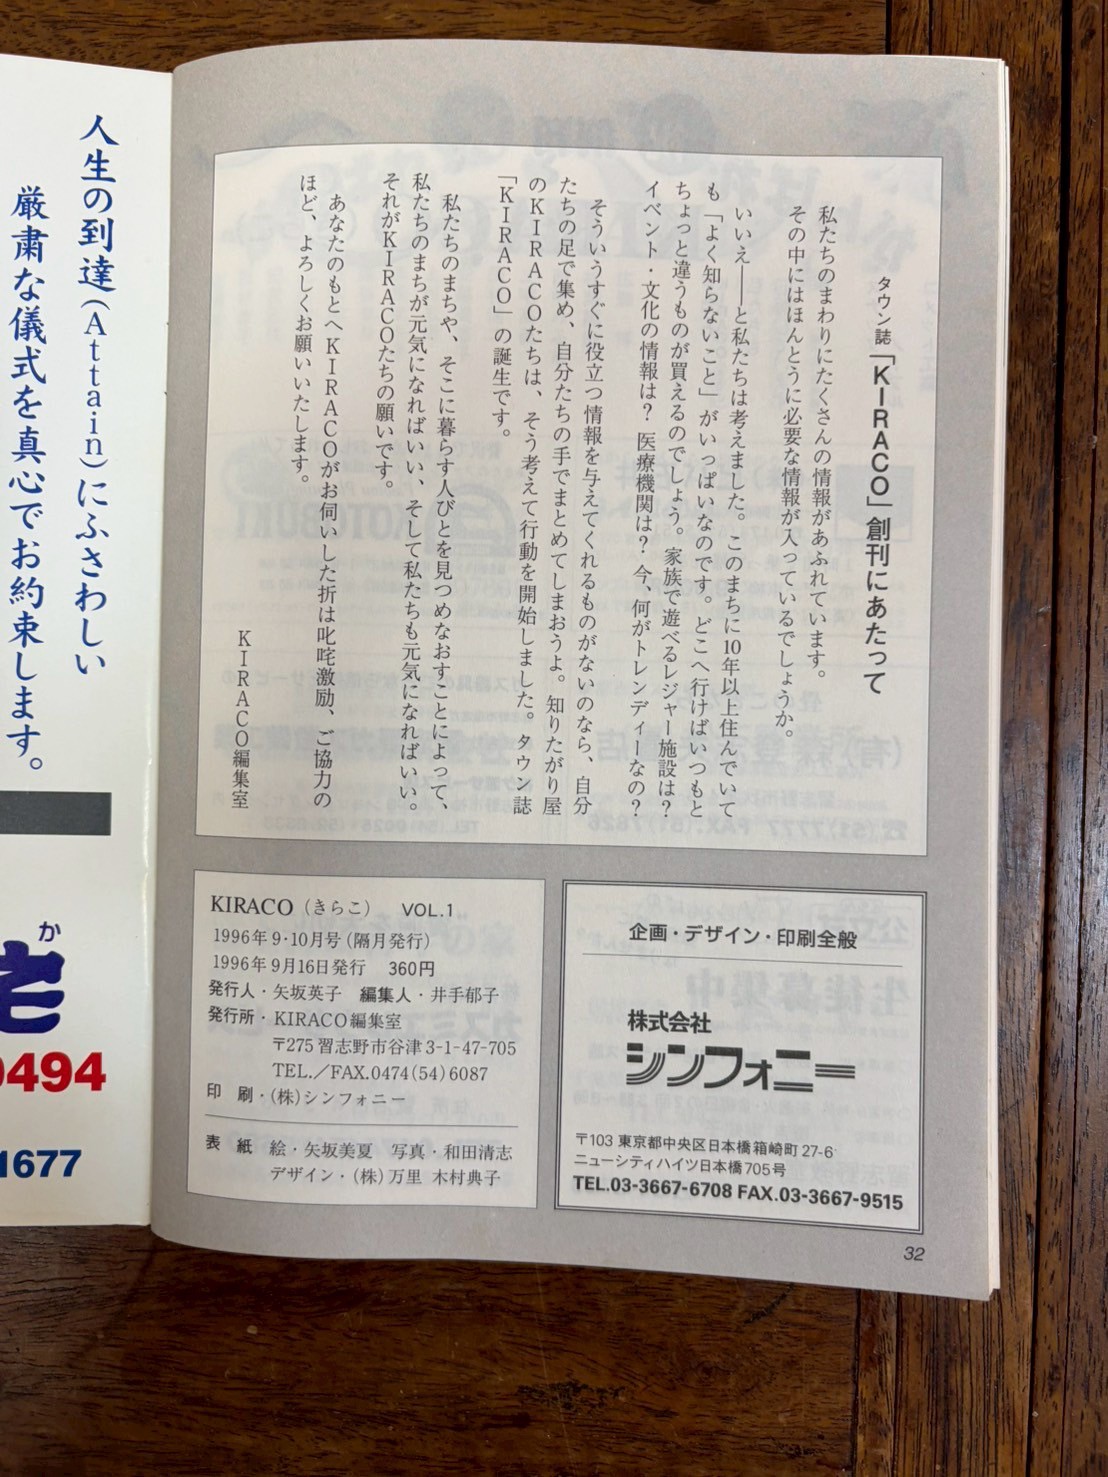 タウン誌「KIRACO」創刊にあたって
私たちのまわりにたくさんの情報があふれています。
その中にはほんとうに必要な情報が入っているでしょうか。
いいえ――と私たちは考えました。このまちに10年以上住んでいて
も「よく知らないこと」がいっぱいなのです。どこへ行けばいつもと
ちょっと違うものが買えるのでしょう。家族で遊べるレジャー施設は?
イベント・文化の情報は? 医療機関は? 今、何がトレンディーなの?
そういうすぐに役立つ情報を与えてくれるものがないのなら、自分
たちの足で集め、自分たちの手でまとめてしまおうよ。知りたがり屋
のKIRACOたちは、そう考えて行動を開始しました。タウン誌
「KIRACO」の誕生です。
私たちのまちや、そこに暮らす人びとを見つめなおすことによって、
私たちのまちが元気になればいい、そして私たちも元気になればいい。
それがKIRACOたちの願いです。
あなたのもとへKIRACOがお伺いした折は叱咤激励、ご協力の
ほど、よろしくお願いいたします。
KIRACO編集室
KIRACO(きらこ) VOL.1
1996年9・10月号(隔月発行)
1996年9月16日発行 360円
発行人・矢坂英子 編集人・井手郁子
発行所・KIRACO編集室
〒275 習志野市谷津3-1-47-705
TEL./FAX.0474(54)6087
印 刷・(株)シンフォニー
表 紙 絵・矢坂美夏 写真・和田清志
デザイン・(株)万里 木村典子
企画・デザイン・印刷全般
株式会社
シンフォニー
〒103 東京都中央区日本橋箱崎町27-6
ニューシティハイツ日本橋705号
TEL.03-3667-6708 FAX.03-3667-9515
32
人生の到達(Attain)にふさわしい
厳粛な儀式を真心でお約束します。
か
0494
1677